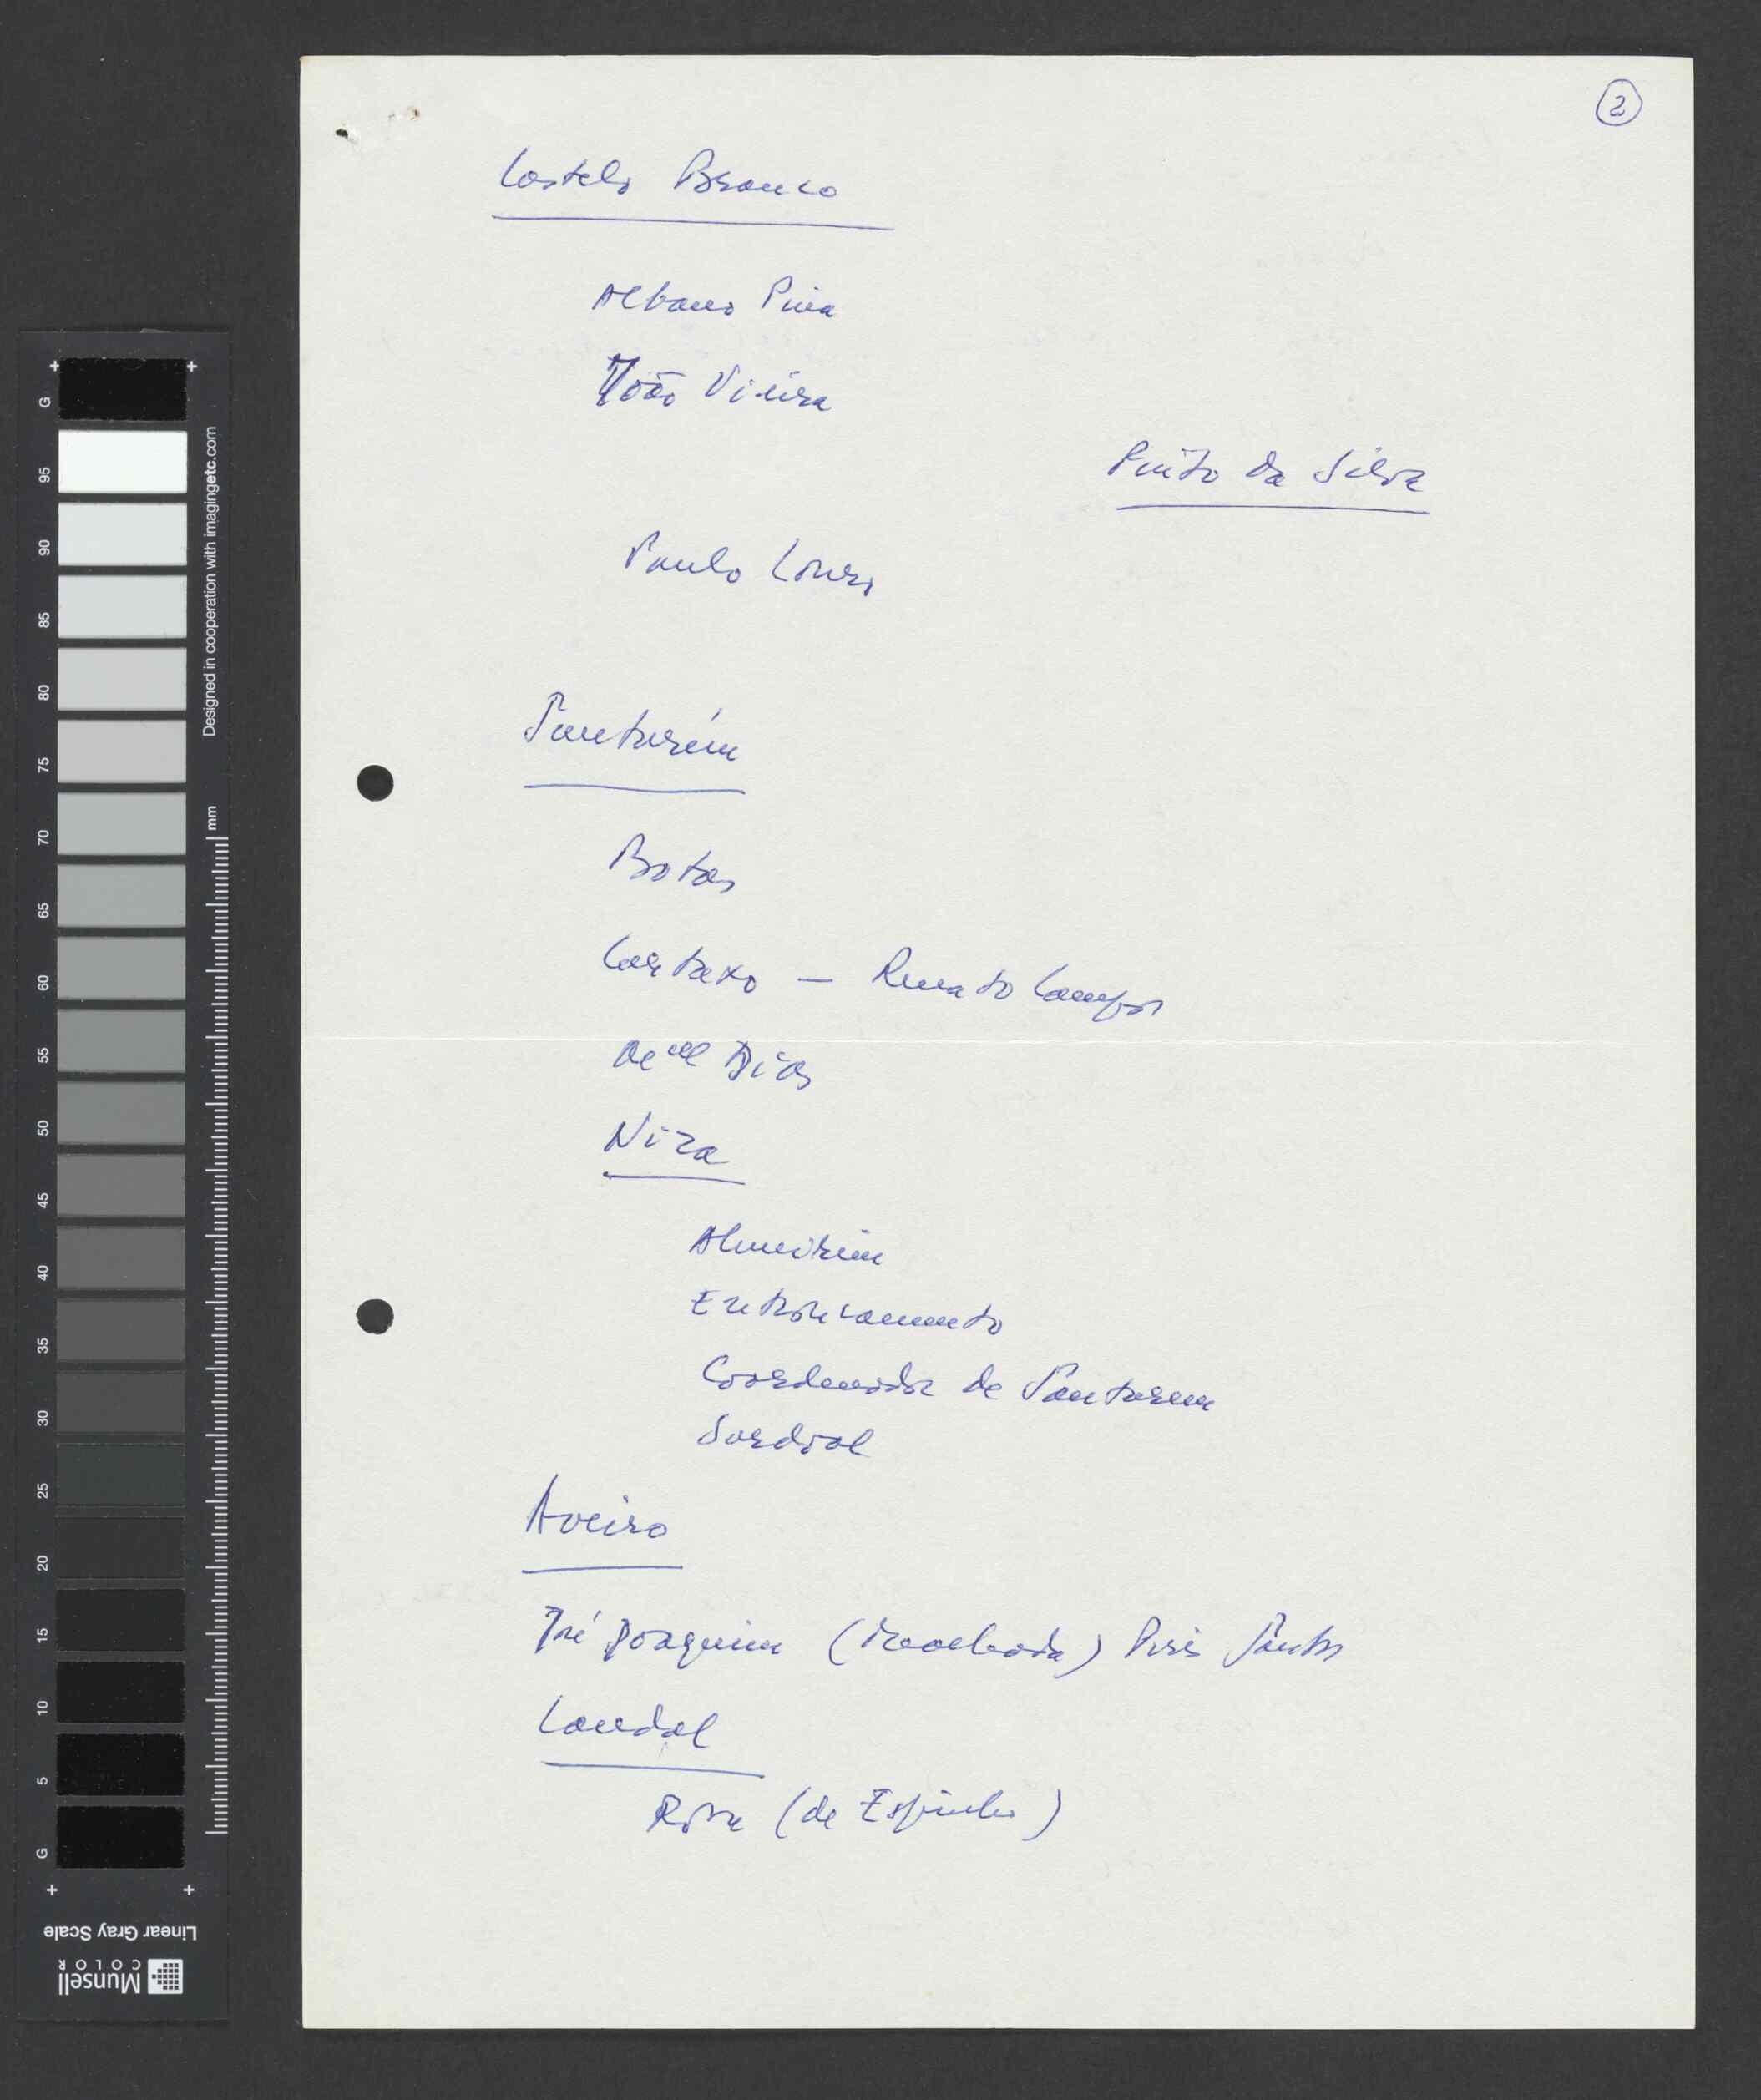 2
Castelo Branco
Albano Pina
João Vieira
Pinto da Silva
Paulo
Santarém
Botas
Cartaxo — Renato Campos
Dias
Niza
Almeirim
Entroncamento
Coordenador de Santarem
Sardoal
Aveiro
José Joaquim ( ) Pires Santos
Candal
Rosa (de Espinho)
G
95
90
85
80
75
70
65
60
55
50
45
40
35
30
25
20
15
10
5
G
mm
Designed in cooperation with imagingetc.com
Linear Gray Scale
Munsell
COLOR